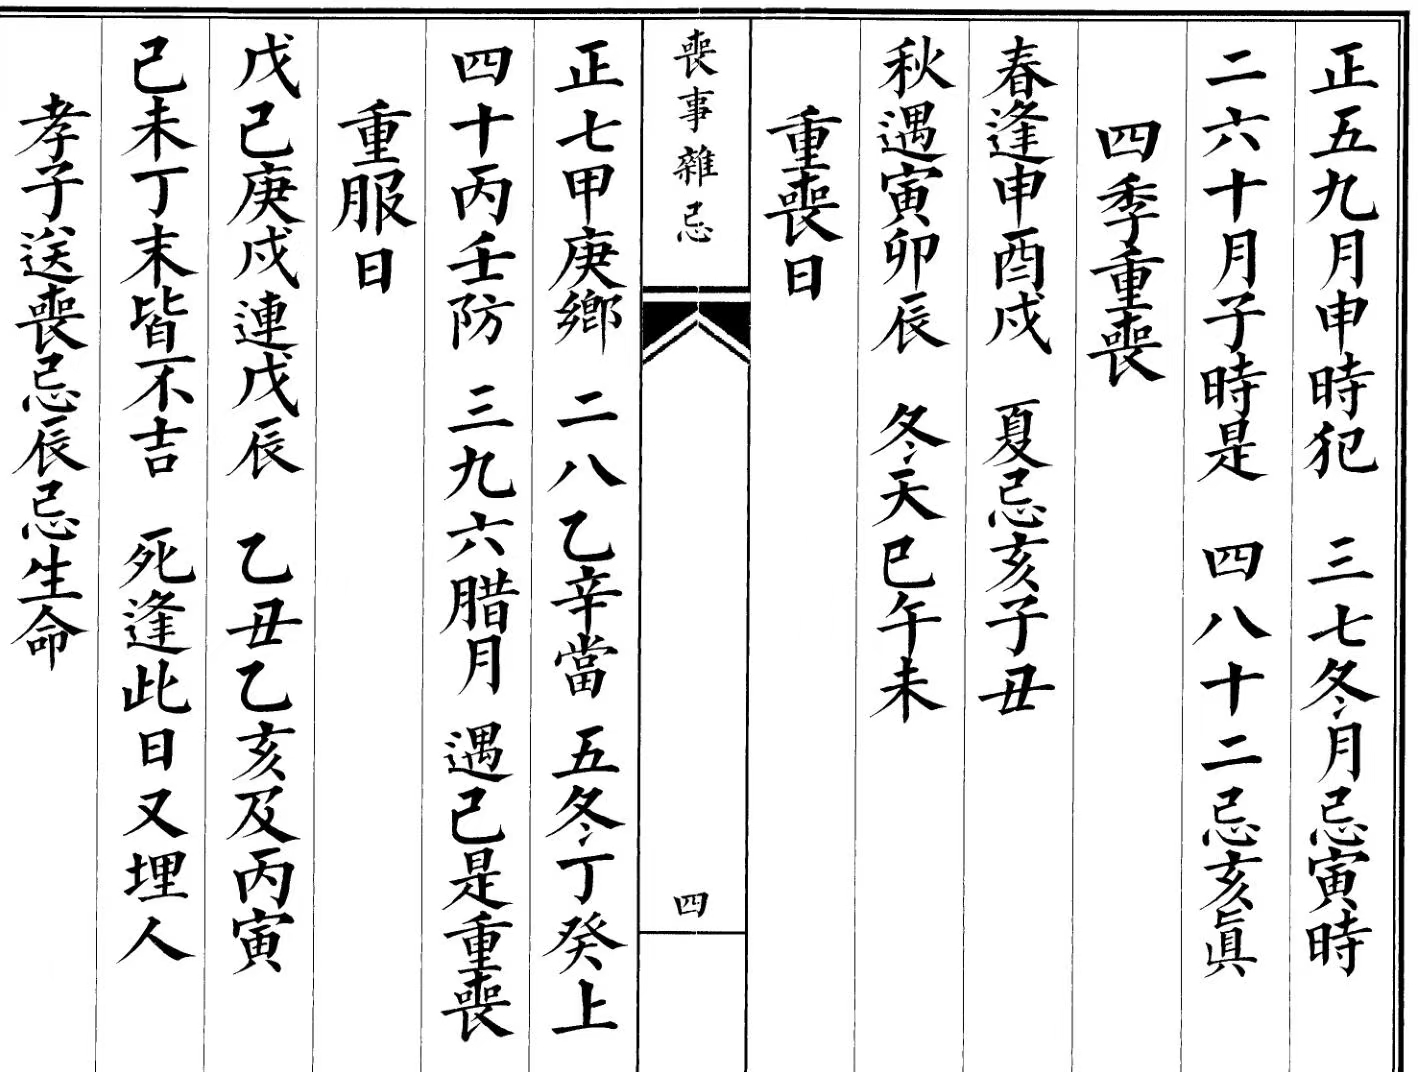 正五九月申時犯　三七冬月忌寅時
二六十月子時是　四八十二忌亥眞
四季重喪
春逢申酉戍　夏忌亥子丑
秋遇寅卯辰　冬天巳午未
重喪日
喪事雜忌
四
正七甲庚鄉　二八乙辛當　五冬丁癸上
四十丙壬防　三九六腊月　遇己是重喪
重服日
戊己庚戍連戊辰　乙丑乙亥及丙寅
己未丁末皆不吉　死逢此日又埋人
孝子送喪忌辰忌生命